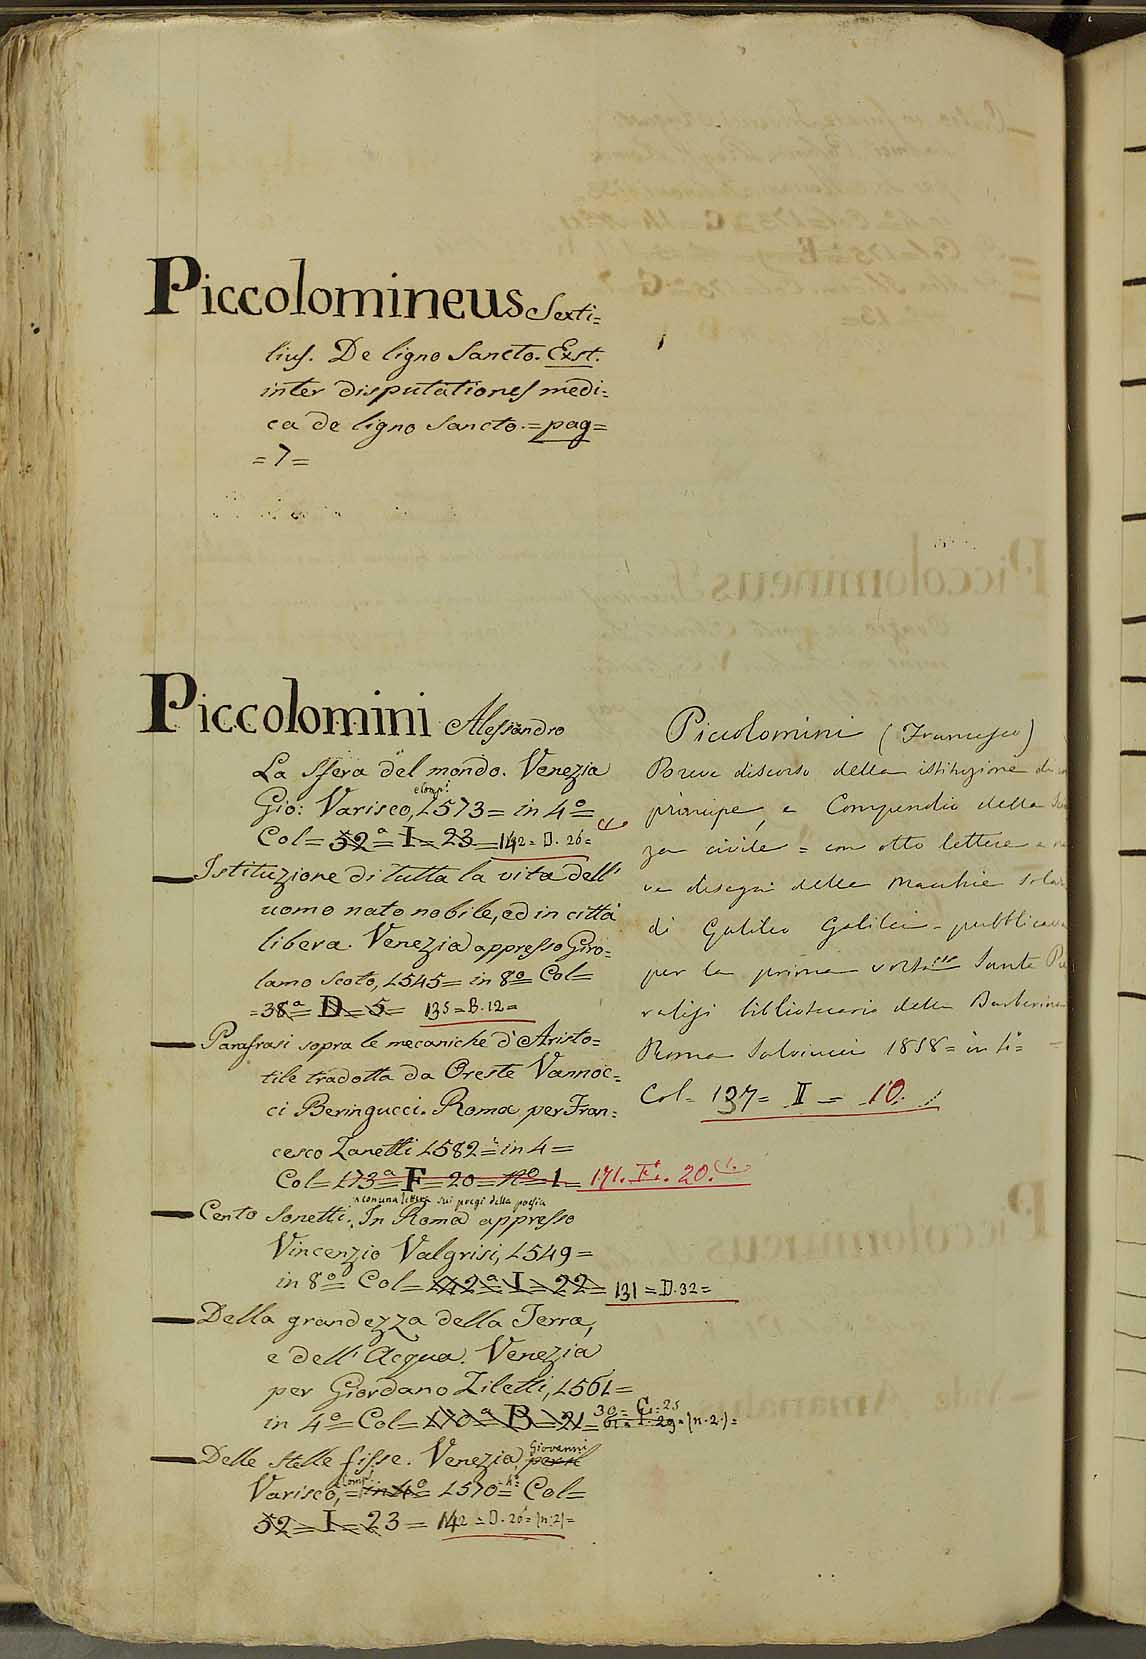 Piccolomineus Sexti=
lius. De ligno Sancto. Exst.
inter disputationes medi=
ca de ligno Sancto. = pag =
= 7 =
Piccolomini Alessandro
La Sfera del mondo. Venezia
Gio: Varisco, e Comp.i 1573 = in 4.o =
Col = 52.a = I = 23 = 142 = D. 26 =
Istituzione di tutta la vita dell'
uomo nato nobile, ed in città
libera. Venezia appresso Giro=
lamo Scoto, 1545 = in 8.o = Col =
= 38.a = D = 5 = 135 = B. 12 =
Parafrasi sopra le mecaniche d'Aristo=
tile tradotta da Oreste Vannoc=
ci Beringucci. Roma per Fran=
cesco Zanetti 1582 = in 4 =
Col = 173.a F = 20 = n.o 1 = 171. F. 20.
Cento Sonetti. con una lettera sui pregi della poesia In Roma appresso
Vincenzio Valgrisi, 1549 =
in 8.o = Col = 142.a = I = 22 = 131 = D. 32 =
Della grandezza della Terra,
e dell' Acqua. Venezia
per Giordano Ziletti, 1561 =
in 4.o = Col = 170.a = B = 21 = 61 = I. 29 = (n. 2.) =
30 = C. = 25
Delle Stelle fisse. Venezia, per il Giovanni
Varisco, e Comp.i = in 4.o 1570 = 4.o Col =
52 = I = 23 = 142 = D. 26 = (n. 2) =
Piccolomini (Francesco)
Breve discorso della istituzione di un
principe, e Compendio della
za civile = con otto lettere e
ve disegni delle Macchie Solari
di Galileo Galilei = pubblicava
per la prima volta Sante Pie
ralisi bibliotecario della Barberina
Roma Salviucci 1858 = in 4.o =
Col = 137 = II = 10.